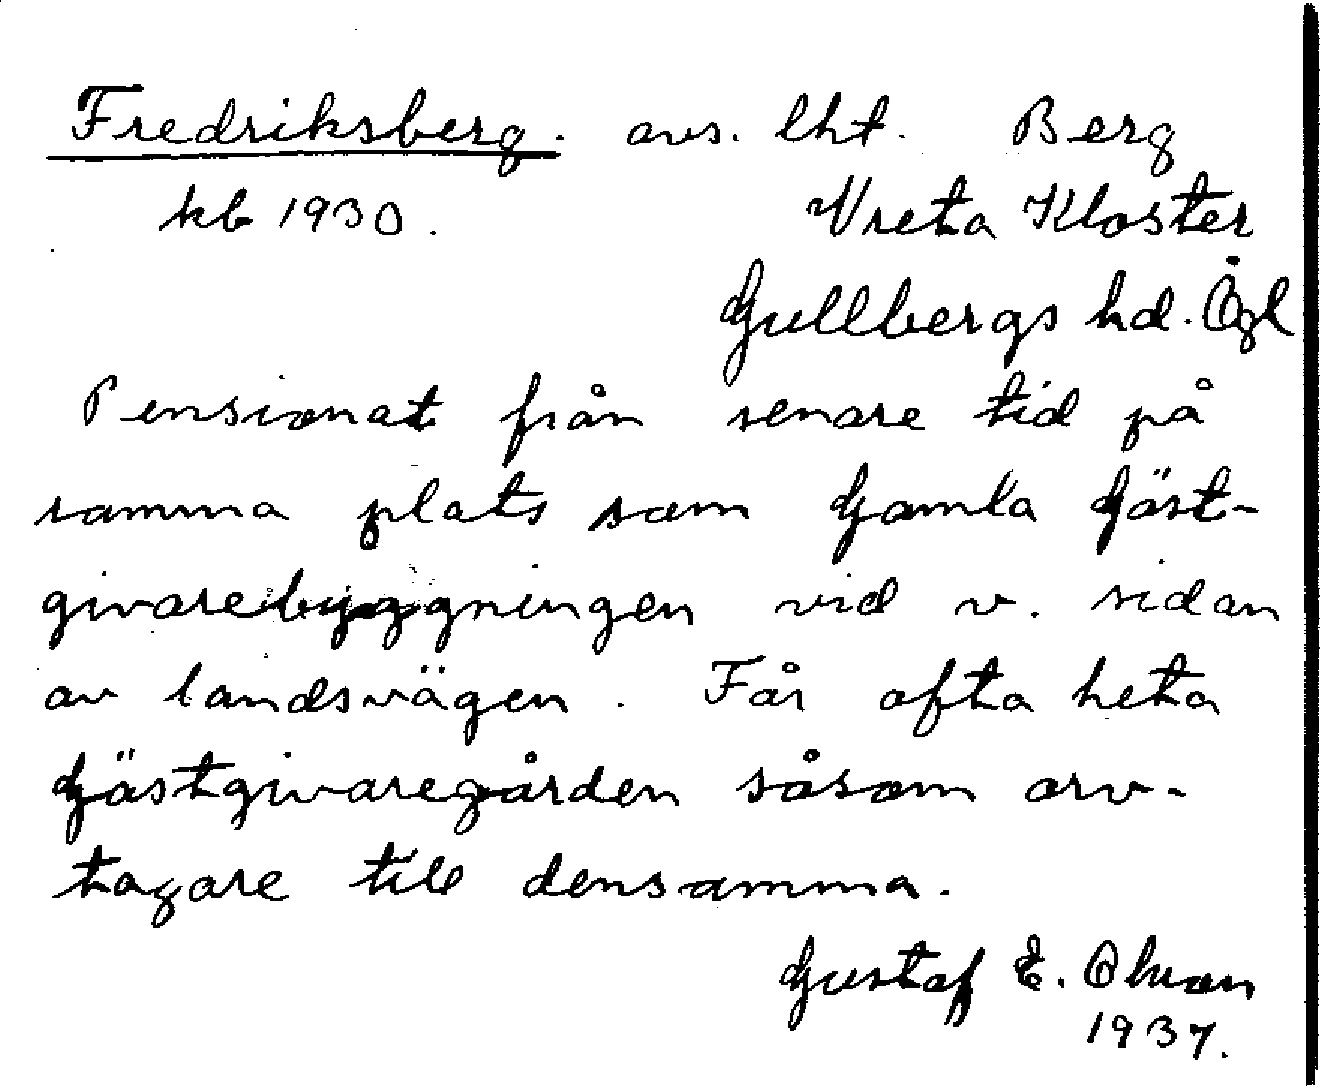 Fredriksberg. avs. lht. Berg
kb 1930. Vreta Kloster
Gullbergs hd. Ögl
Pensionat från senare tid på
samma plats som Gamla Gäst-
givarebyggningen vid v. sidan
av landsvägen. Får ofta heta
Gästgivaregården såsom arv-
tagare till densamma.
Gustaf E. Olsson
1937.